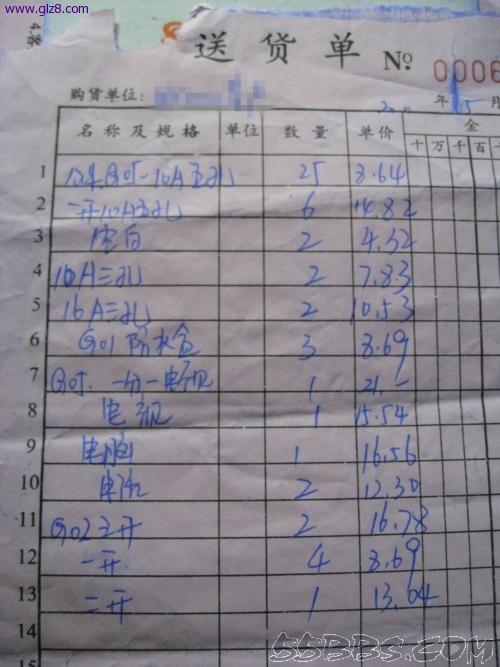 www.glz8.com
送货单 No 0006
购货单位:
年 5 月
名称及规格 单位 数量 单价 金
十 万 千 百
1 G05-10A五孔 25 8.64
2 一开10A五孔 6 14.82
3 空白 2 4.32
4 10A三孔 2 7.83
5 16A三孔 2 10.53
6 G01防水盒 3 8.69
7 G05. 一分一电视 1 21.-
8 电视 1 15.54
9 电脑 1 16.56
10 电话 2 12.30
11 G02三开 2 16.78
12 一开 4 8.69
13 二开 1 13.04
14
15
55BBS.COM